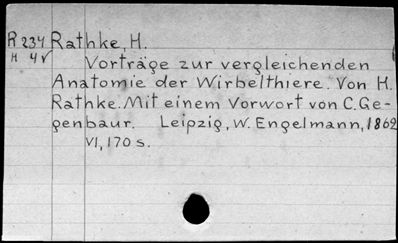 R 234 Rathke, H.
H 4v Vorträge zur vergleichenden
Anatomie der Wirbelthiere. Von H.
Rathke. Mit einem Vorwort von C. Ge-
genbaur. Leipzig, W. Engelmann, 1862
VI, 170 s.